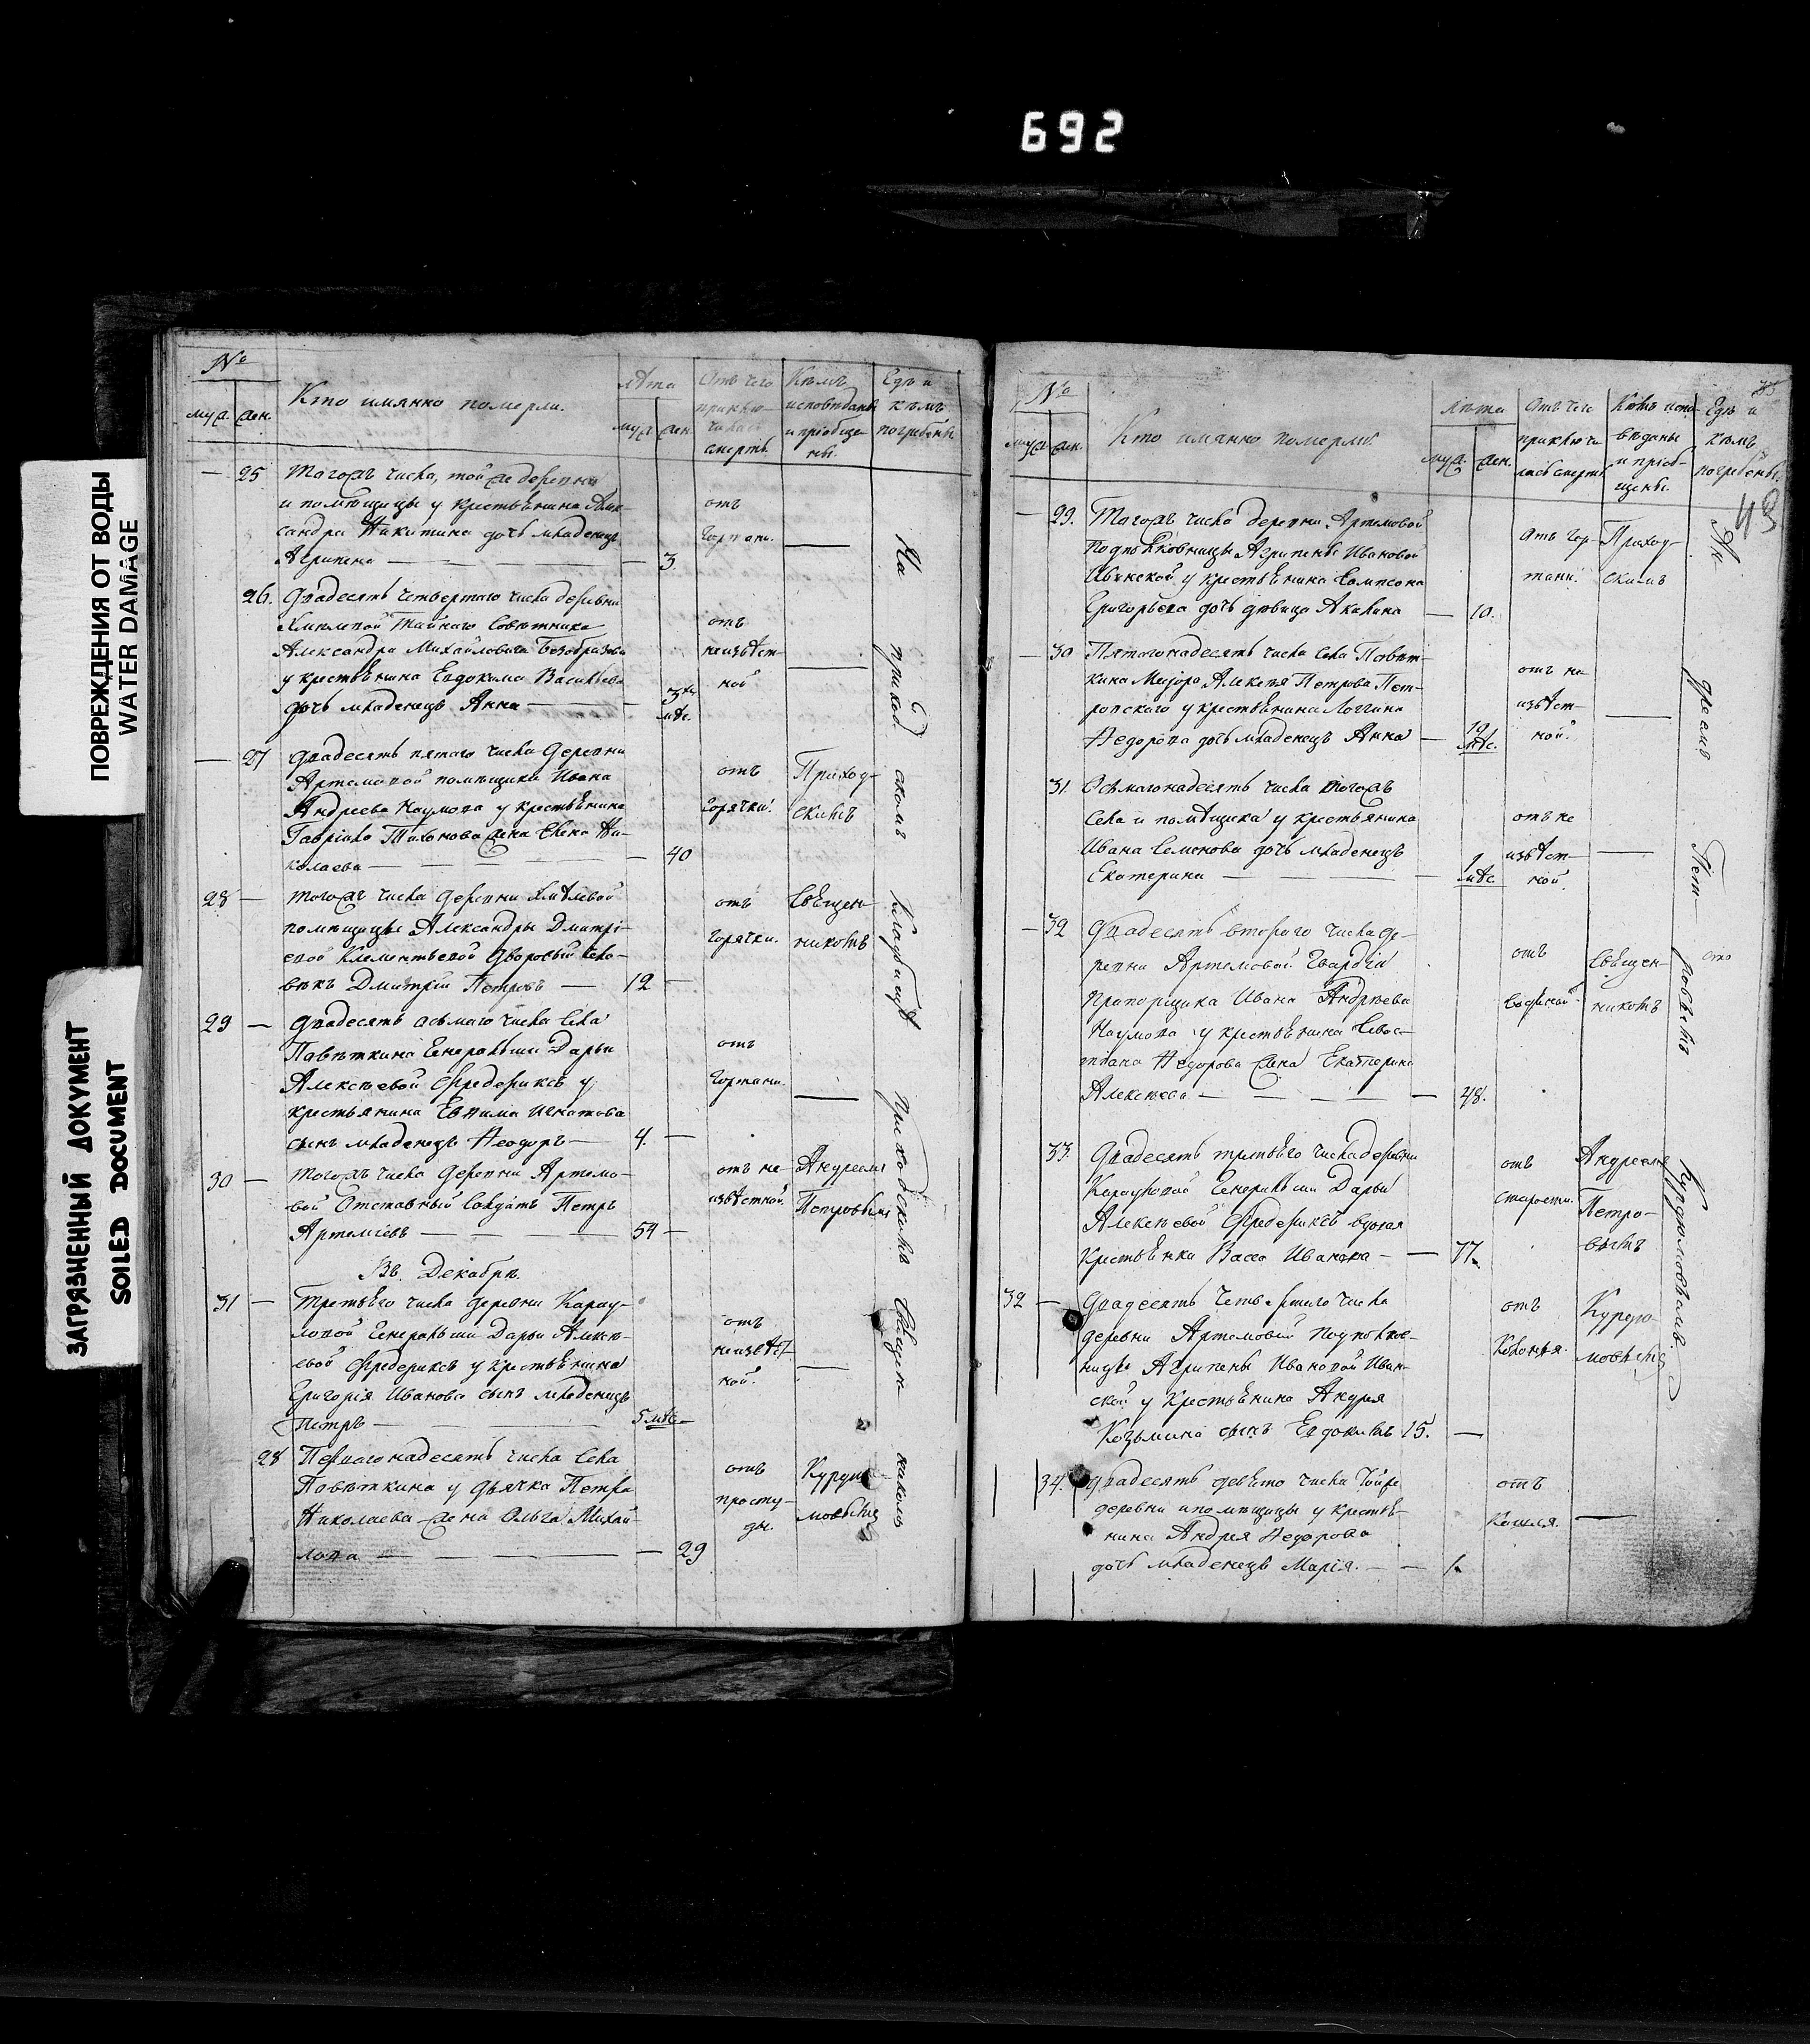 692
ПОВРЕЖДЕНИЯ ОТ ВОДЫ
WATER DAMAGE
ЗАГРЯЗНЕННЫЙ ДОКУМЕНТ
SOILED DOCUMENT
№
муж. жен.
Кто имянно померли.
лѣта
муж жен
Отъ чего
приклю-
чилась
смерть.
Кѣмъ
исповѣданы
и пріобще-
ны.
Гдѣ и
кѣмъ
погребены
— 25 Тогожъ числа, той же деревни
и помѣщицы у крестьянина Алек-
сандра Никитина дочь младенецъ
Агрипена — 3
отъ
гортани.
26. Двадесять четвертаго числа деревни
Хмѣлевой Тайнаго Совѣтника
Александра Михайловича Безобразова
у крестьянина Евдокима Васильева
дочь младенецъ Анна — 3хъ
мѣс.
отъ
неизвѣст-
ной
— 27 двадесять пятаго числа деревни
Артемовой помѣщика Ивана
Андреева Наумова у крестьянина
Гавріила Тихонова жена Елена Ни-
колаева — 40
отъ
горячки.
Приход-
скимъ
28 — тогожъ числа деревни Хмѣлевой
помѣщицы Александры Дмитрі-
евой Клементьевой дворовый чело-
вѣкъ Дмитрій Петровъ — 12 —
отъ
горячки.
Священ-
никомъ
29 — двадесять осьмаго числа села
Павѣткина Генеральши Дарьи
Алексѣевой Фредериксъ у
крестьянина Евѳима Игнатова
сынъ младенецъ Ѳеодоръ — 4. —
отъ
гортани.
30 — тогожъ числа деревни Артемо-
вой Отставный Солдатъ Петръ
Артеміевъ — 54 —
отъ не-
извѣстной.
Андреемъ
Петровымъ
Въ Декабрѣ
31 — Третьяго числа деревни Карау-
ловой Генеральши Дарьи Алексѣ-
евой Фредериксъ у крестьянина
Григорія Иванова сынъ младенецъ
Петръ — 5 мѣс —
отъ
неизвѣст-
ной.
28 Перваго надесять числа села
Повѣткина у дьячка Петра
Николаева жена Ольга Михай-
лова — 29
отъ
просту-
ды.
Курдю-
мовымъ
На
приход
скомъ
кладбищѣ
приходскимъ
Священ
никомъ
№
муж. жен.
Кто имянно померли
лѣта
муж. жен.
Отъ чего
приключи
лась смерть
Кѣмъ испо-
вѣданы
и пріоб-
щены.
Гдѣ и
кѣмъ
погребены.
43
— 29. Тогожъ числа деревни Артемовой
Подполковницы Агрипены Ивановой
Ивинской у крестьянина Сампсона
Григорьева дочь дѣвица Акилина — 10.
Отъ гор-
тани.
Приход-
скимъ
— 30 Пятагонадесять числа села Павѣт-
кина Маіора Алексѣя Петрова Пет-
ровскаго у крестьянина Логгина
Ѳедорова дочь младенецъ Анна —
мѣс.
отъ не-
извѣст-
ной.
31. Осьмагонадесять числа тогожъ
села и помѣщика у крестьянина
Ивана Семенова дочь младенецъ
Екатерина —
мѣс
отъ не
извѣст-
ной.
— 32 Двадесять втораго числа де-
ревни Артемовой Гвардіи
Прапорщика Ивана Андрѣева
Наумова у крестьянина Севас-
тіана Ѳедорова жена Екатерина
Алексѣева — 48.
отъ
Священ-
никомъ
33. Двадесять третьяго числа деревни
Карауловой Генеральши Дарьи
Алексѣевой Фредериксъ вдовая
Крестьянка Васса Иванова — 77.
отъ
старости.
Андреемъ
Петро-
вымъ
32 — Двадесять четвертаго числа
деревни Артемовой подполков-
ницы Агрипены Ивановой Ивин-
ской у Крестьянина Андрея
Козьмина сынъ Евдокимъ 15. —
отъ
Курдю-
мовымъ
34. двадесять девято числа тойже
деревни и помѣщицы у крестья-
нина Андрея Ѳедорова
дочь младенецъ Марія. — 1.
отъ
кашля.
Ан
дреемъ
Пет
ровымъ
Курдюмовымъ.